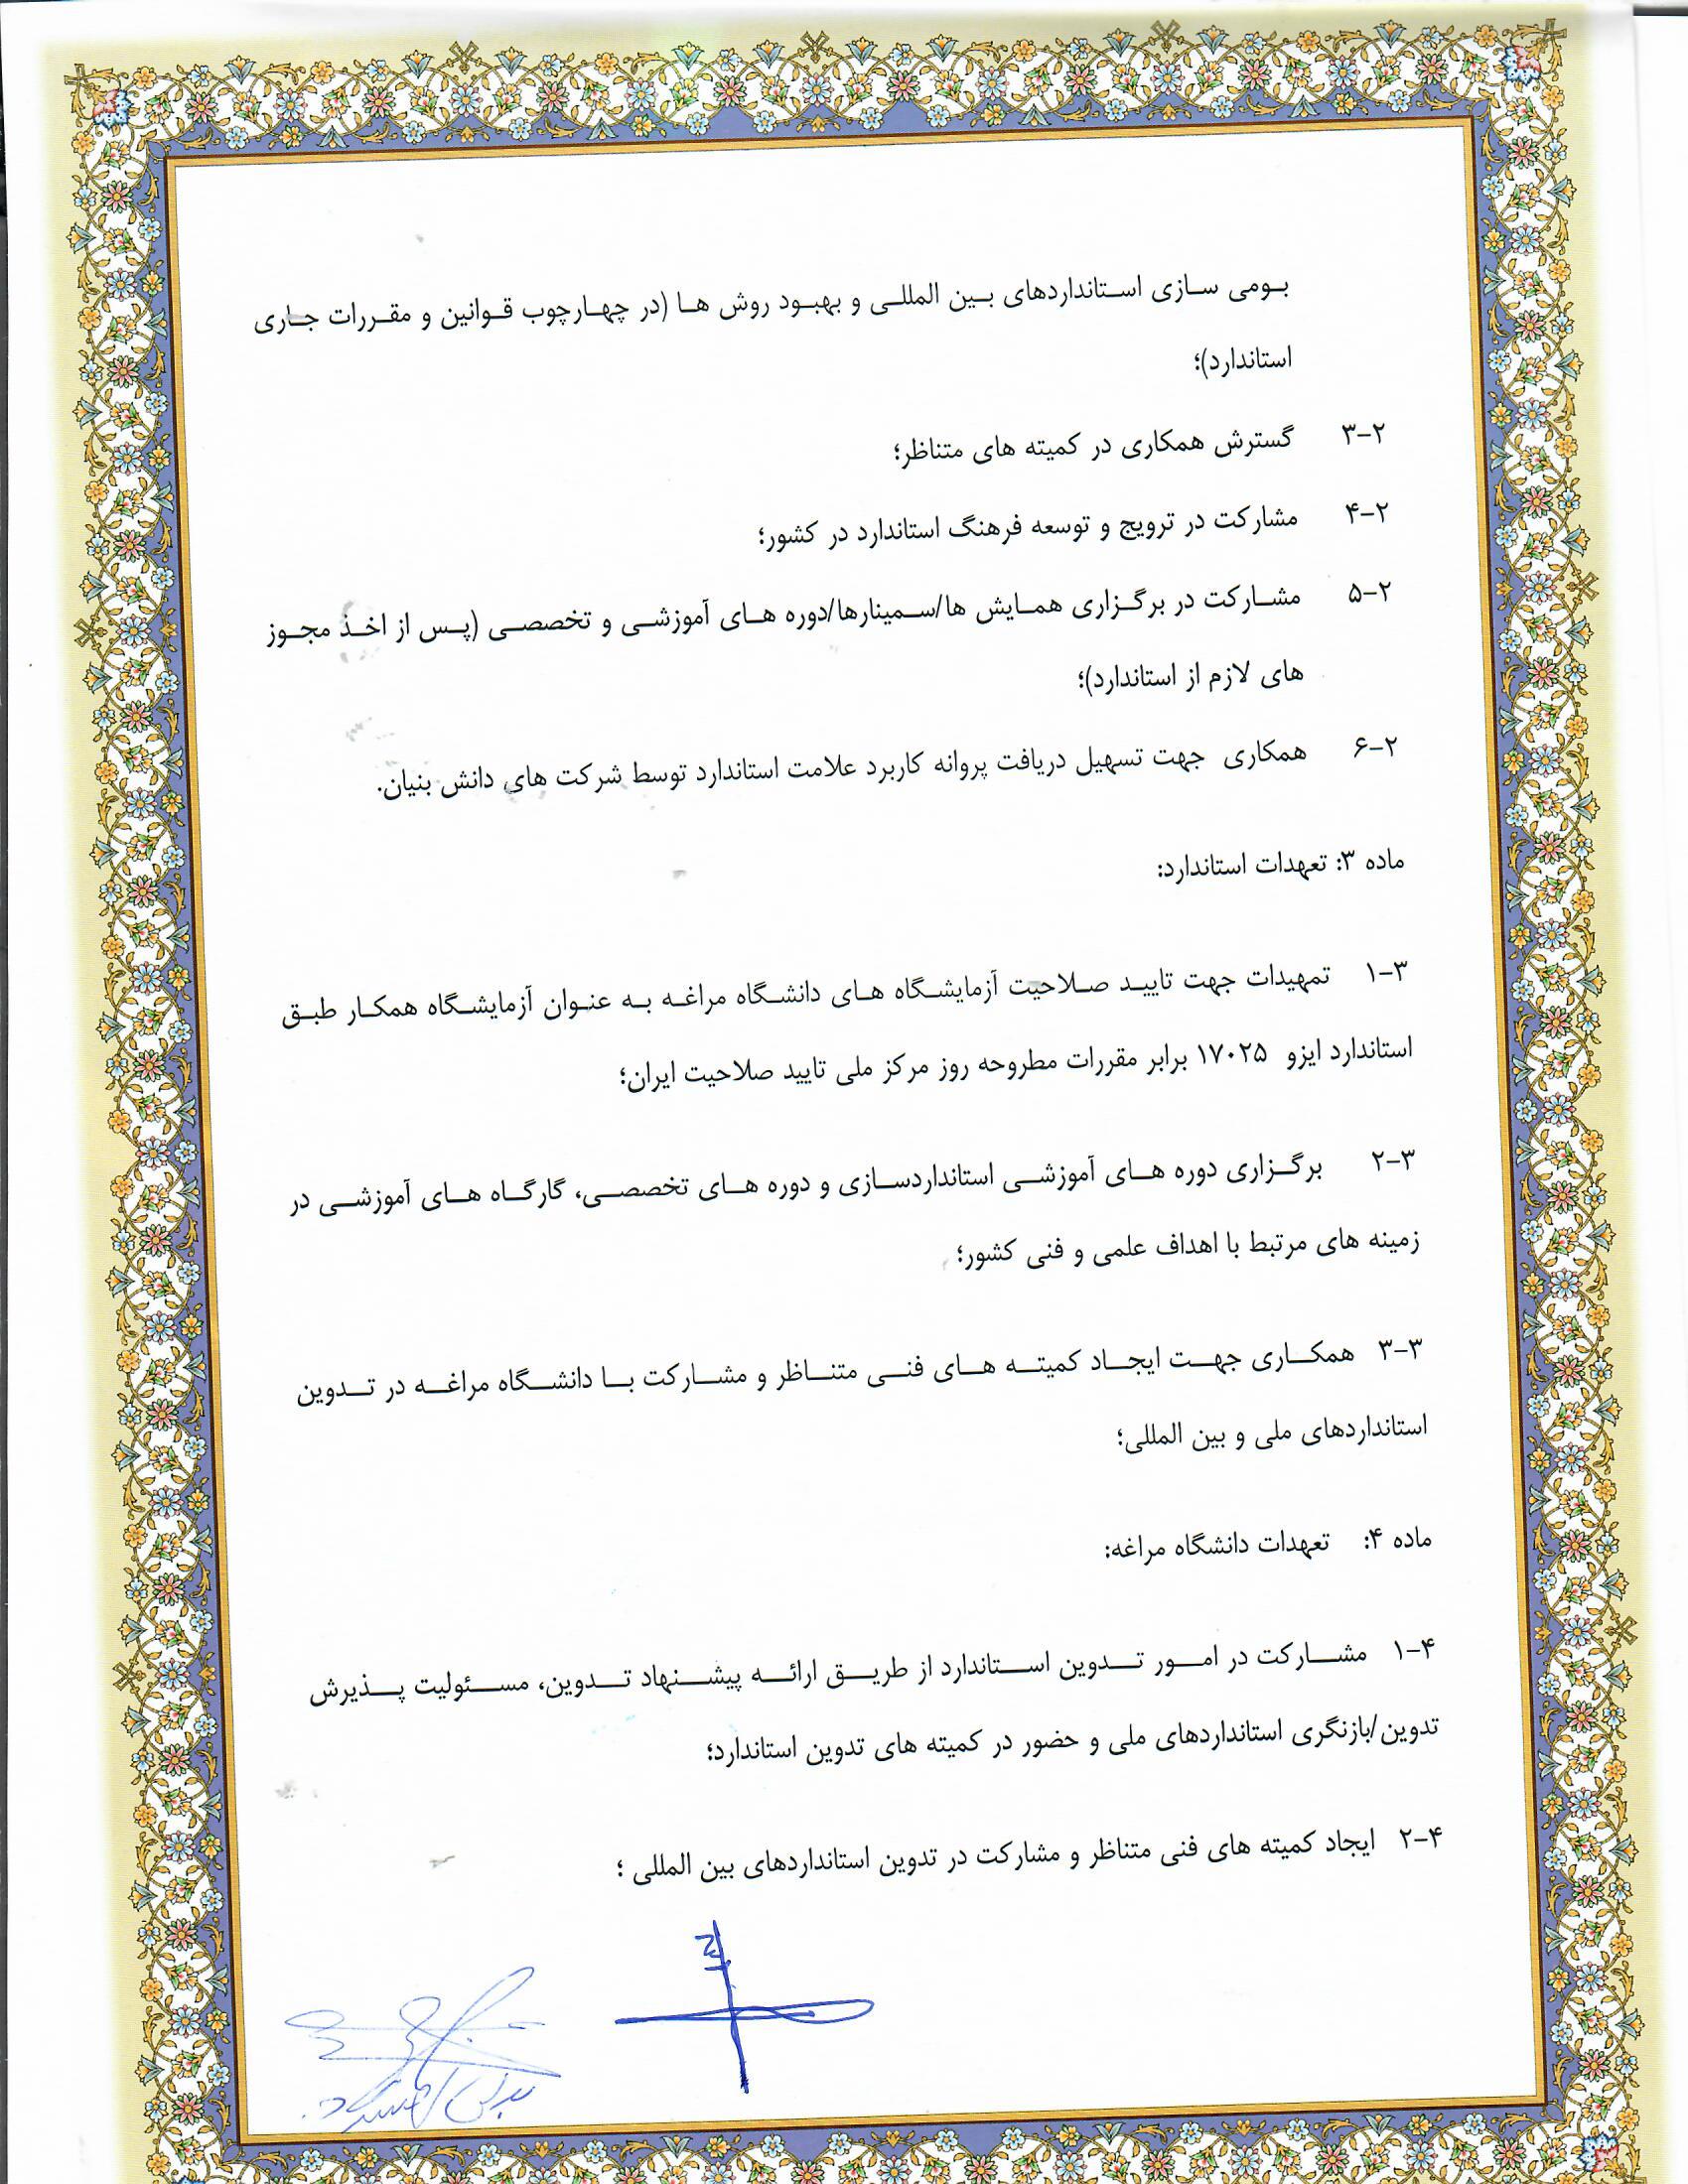 بومی سازی استانداردهای بین المللی و بهبود روش ها (در چهارچوب قوانین و مقررات جاری
استاندارد)؛
۳-۲ گسترش همکاری در کمیته های متناظر؛
۴-۲ مشارکت در ترویج و توسعه فرهنگ استاندارد در کشور؛
۵-۲ مشارکت در برگزاری همایش ها/سمینارها/دوره های آموزشی و تخصصی (پس از اخذ مجوز
های لازم از استاندارد)؛
۶-۲ همکاری جهت تسهیل دریافت پروانه کاربرد علامت استاندارد توسط شرکت های دانش بنیان.
ماده ۳: تعهدات استاندارد:
۱-۳ تمهیدات جهت تایید صلاحیت آزمایشگاه های دانشگاه مراغه به عنوان آزمایشگاه همکار طبق
استاندارد ایزو ۱۷۰۲۵ برابر مقررات مطروحه روز مرکز ملی تایید صلاحیت ایران؛
۲-۳ برگزاری دوره های آموزشی استانداردسازی و دوره های تخصصی، گارگاه های آموزشی در
زمینه های مرتبط با اهداف علمی و فنی کشور؛
۳-۳ همکاری جهت ایجاد کمیته های فنی متناظر و مشارکت با دانشگاه مراغه در تدوین
استانداردهای ملی و بین المللی؛
ماده ۴: تعهدات دانشگاه مراغه:
۱-۴ مشارکت در امور تدوین استاندارد از طریق ارائه پیشنهاد تدوین، مسئولیت پذیرش
تدوین/بازنگری استانداردهای ملی و حضور در کمیته های تدوین استاندارد؛
۲-۴ ایجاد کمیته های فنی متناظر و مشارکت در تدوین استانداردهای بین المللی ؛